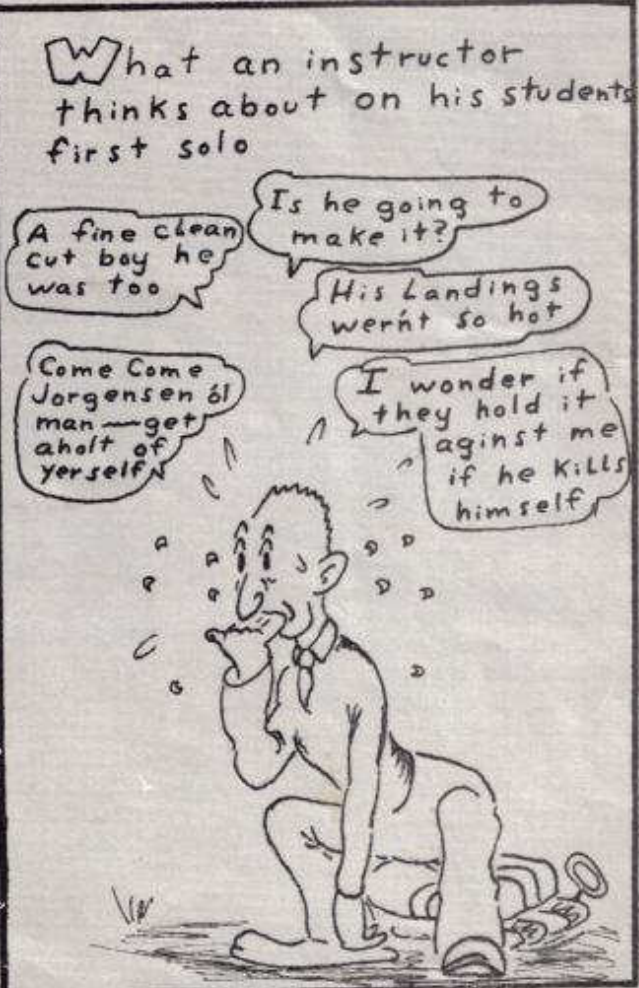 What an instructor
thinks about on his students
first solo
Is he going to
make it?
A fine clean
cut boy he
was too
His Landings
wern't so hot
Come Come
Jorgensen ól
man—get
aholt of
yerself
I wonder if
they hold it
aginst me
if he kills
himself